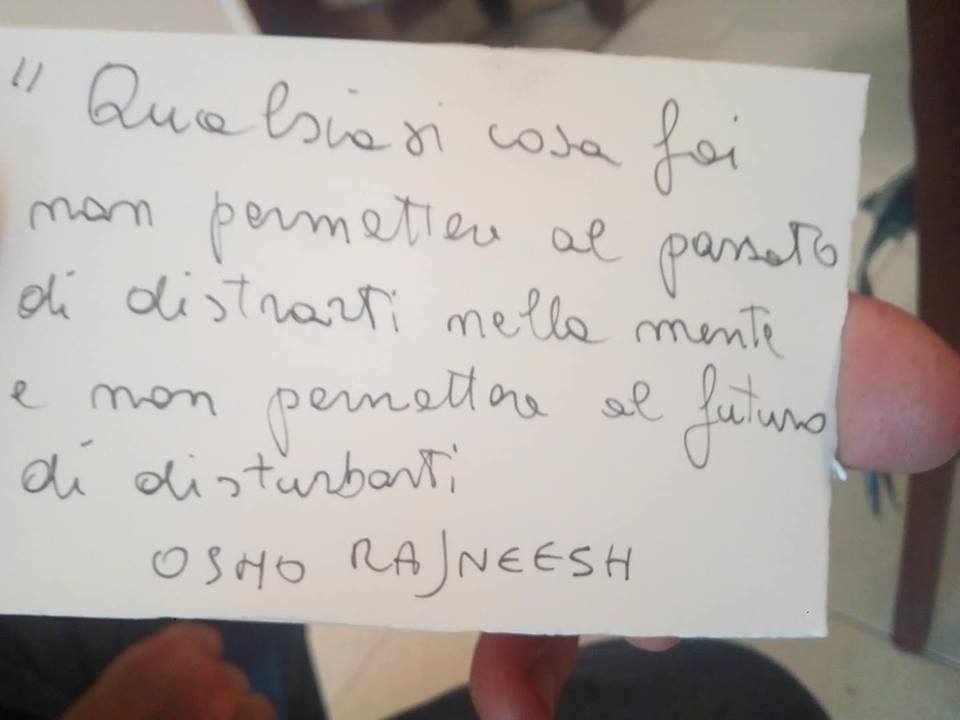 " Qualsiasi cosa fai
non permettere al passato
di distrarti nella mente
e non permettere al futuro
di disturbarti
OSHO RAJNEESH